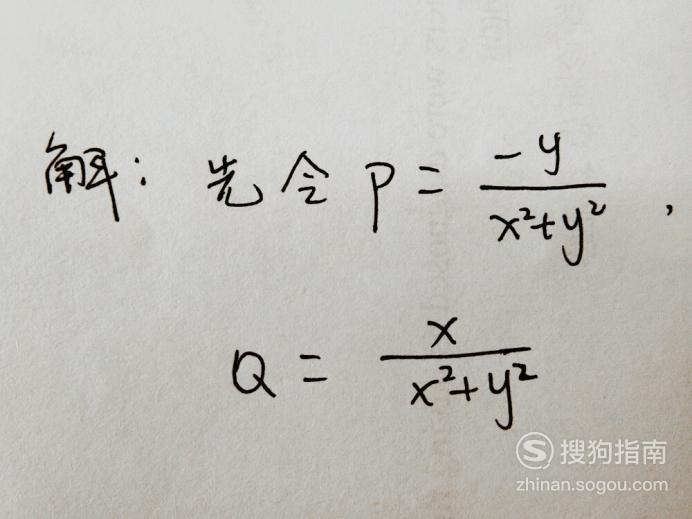 解：先令 P = \frac{-y}{x^2+y^2} ,
Q = \frac{x}{x^2+y^2}
S 搜狗指南
zhinan.sogou.com